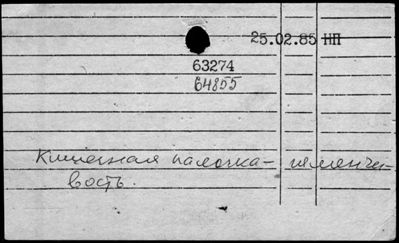 25.02.85 НП
63274
64855
Кишечная палочка - изменчи-
вость.